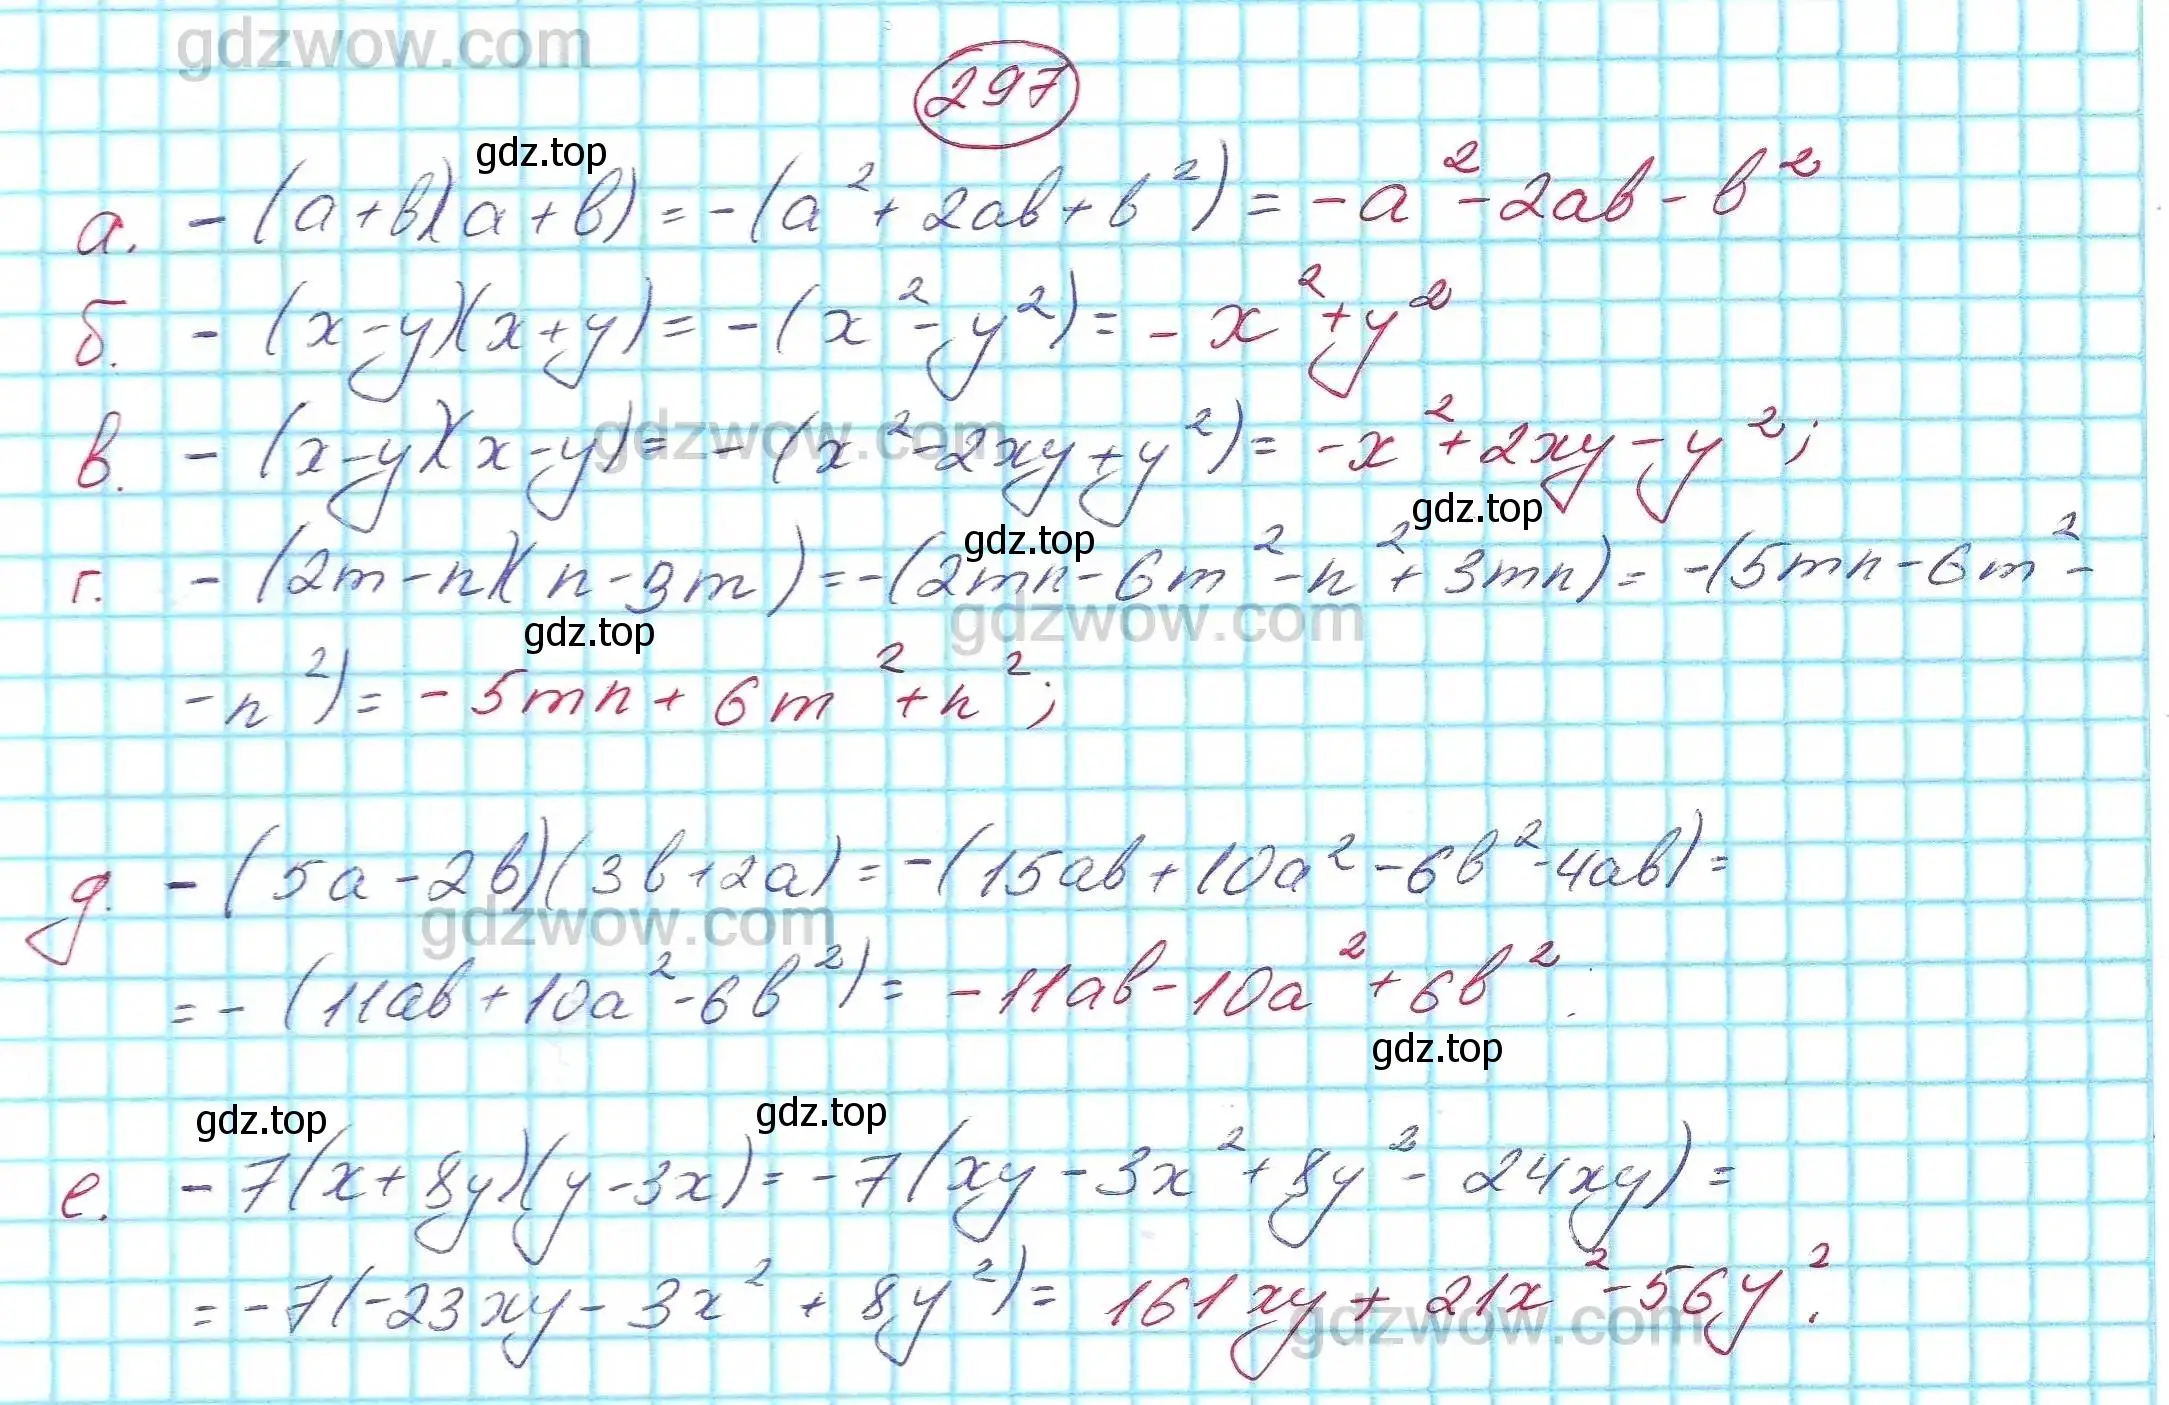 gdzwow.com
297
gdz.top
а. - (a+b)(a+b) = -(a² + 2ab + b²) = -a² - 2ab - b²
б. - (x-y)(x+y) = -(x² - y²) = -x² + y²
в. - (x-y)(x-y) = -(x² - 2xy + y²) = -x² + 2xy - y²;
gdzwow.com
gdz.top
gdz.top
г. - (2m-n)(n-3m) = -(2mn - 6m² - n² + 3mn) = -(5mn - 6m² -
gdz.top
gdzwow.com
- n²) = -5mn + 6m² + n²;
д. - (5a-2b)(3b+2a) = -(15ab + 10a² - 6b² - 4ab) =
gdzwow.com
= -(11ab + 10a² - 6b²) = -11ab - 10a² + 6b².
gdz.top
gdz.top
gdz.top
е. -7(x+8y)(y-3x) = -7(xy - 3x² + 8y² - 24xy) =
= -7(-23xy - 3x² + 8y²) = 161xy + 21x² - 56y².
gdzwow.com